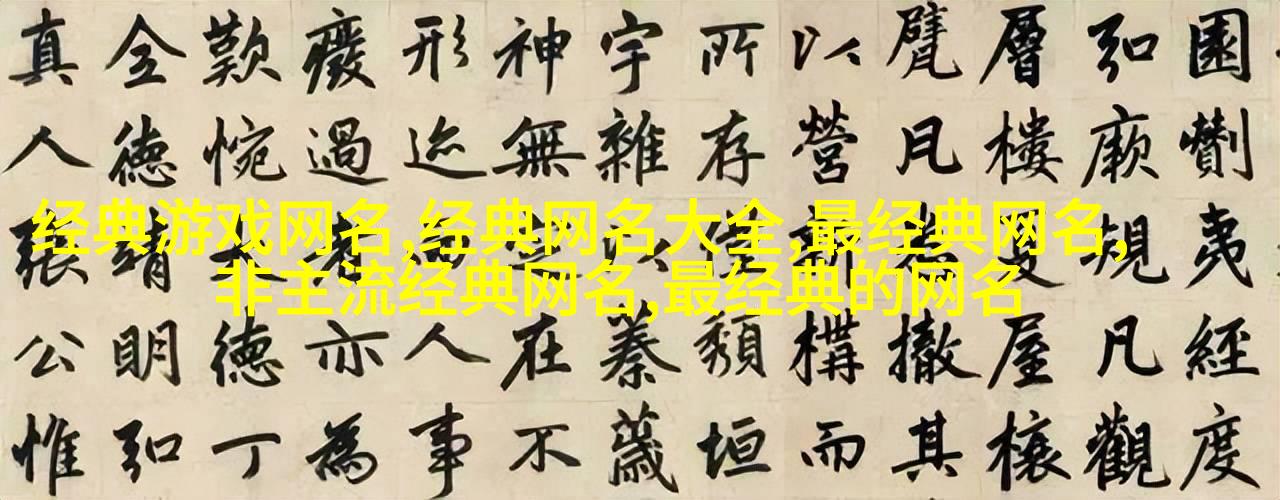 经典游戏网名,经典网名大全,最经典网名,
非主流经典网名,最经典的网名
園夷經度
弘厥規凡觀
層樓屋榱
甓凡撤其
以營新構而
所存頹垣
宇雜以蓁薉
神無在不
形迹人事
廢過者亦為
歎惋德丁
全德靖明弘
真人張公惟